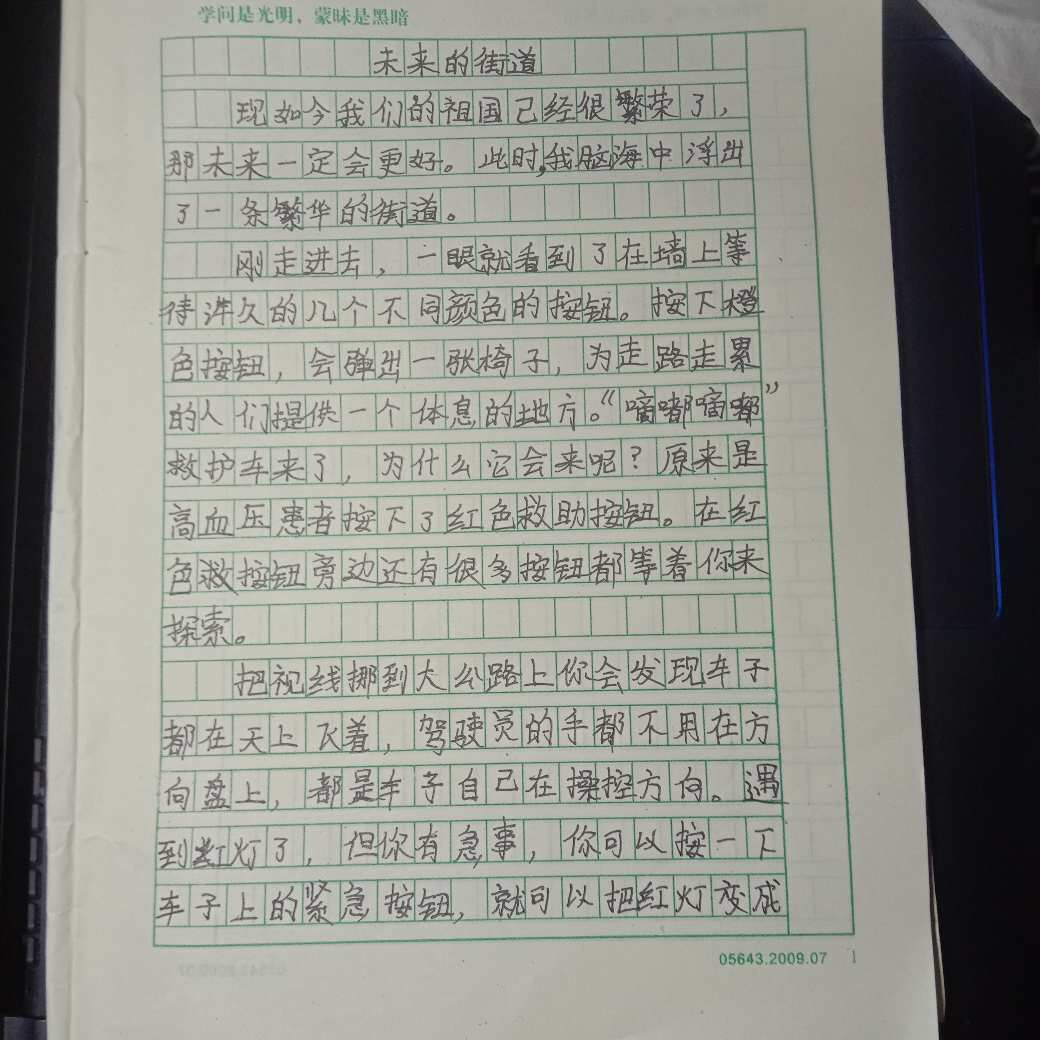 学问是光明，蒙昧是黑暗
未来的街道
现如今我们的祖国已经很繁荣了，
那未来一定会更好。此时，我脑海中浮出
了一条繁华的街道。
刚走进去，一眼就看到了在墙上等
待许久的几个不同颜色的按钮。按下橙
色按钮，会弹出一张椅子，为走路走累
的人们提供一个体息的地方。“嘀嘟嘀嘟”
救护车来了，为什么它会来呢？原来是
高血压患者按下了红色救助按钮。在红
色救按钮旁边还有很多按钮都等着你来
探索。
把视线挪到大公路上你会发现车子
都在天上飞着，驾驶员的手都不用在方
向盘上，都是车子自己在操控方向。遇
到红灯了，但你有急事，你可以按一下
车子上的紧急按钮，就可以把红灯变成
05643.2009.07 1